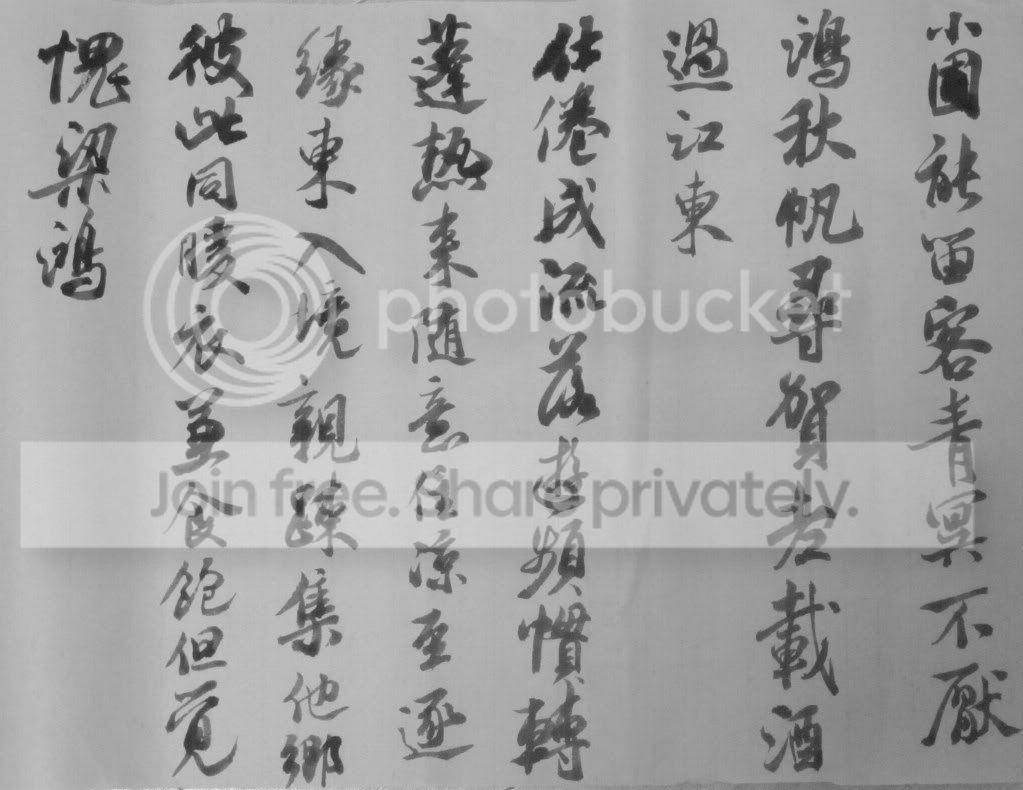 小圃能留客青冥不厭
鴻秋帆尋賀老載酒
過江東
仕倦成流落遊頻慣轉
蓬熱来随意住涼至逐
緣東入境親疎集他鄉
彼此同暖衣兼食飽但覚
愧梁鴻
photobucket
Join free. Share privately.